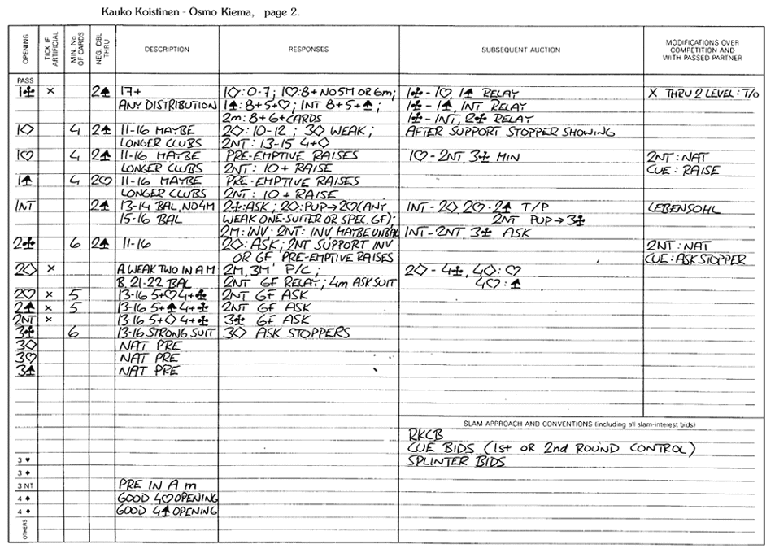 Kauko Koistinen - Osmo Kiema, page 2.
OPENING TICK IF ARTIFICIAL MIN. No. OF CARDS NEG. DBL THRU DESCRIPTION RESPONSES SUBSEQUENT AUCTION MODIFICATIONS OVER COMPETITION AND WITH PASSED PARTNER
PASS
1♣ X 2♠ 17+ 1♢: 0-7; 1♡: 8+ NO 5M OR 6m; 1♣ - 1♡ 1♠ RELAY X THRU 2 LEVEL: T/O
ANY DISTRIBUTION 1♠: 8+5+♡; 1NT 8+5+♠; 1♣ - 1♠ 1NT RELAY
2m: 8+6+CARDS 1♣ - 1NT, 2♣ RELAY
1♢ 4 2♠ 11-16 MAYBE 2♢: 10-12; 3♢ WEAK; AFTER SUPPORT STOPPER SHOWING
LONGER CLUBS 2NT: 13-15 4+♢
1♡ 4 2♠ 11-16 MAYBE PRE-EMPTIVE RAISES 1♡ - 2NT 3♣ MIN 2NT: NAT
LONGER CLUBS 2NT: 10+ RAISE CUE: RAISE
1♠ 4 2♡ 11-16 MAYBE PRE-EMPTIVE RAISES
LONGER CLUBS 2NT: 10+ RAISE
1NT 2♠ 13-14 BAL, NO 4M 2♣: ASK; 2♢: PUP→2♡(ANY 1NT - 2♢, 2♡ - 2♠ T/P LEBENSOHL
15-16 BAL WEAK ONE-SUITER OR SPEC. GF); 2NT PUP→3♣
2M: INV: 2NT: INV MAYBE UNBAL 1NT - 2NT 3♣ ASK
2♣ 6 2♠ 11-16 2♢: ASK; 2NT SUPPORT INV 2NT: NAT
OR GF, PRE-EMPTIVE RAISES CUE: ASK STOPPER
2♢ X A WEAK TWO IN A M 2M, 3M P/C; 2♢ - 4♣, 4♢: ♡
B. 21-22 BAL 2NT GF RELAY; 4m ASK SUIT 4♡: ♠
2♡ X 5 13-16 5+♡ 4+♣ 2NT GF ASK
2♠ X 5 13-16 5+♠ 4+♣ 2NT GF ASK
2NT X 13-16 5+♢ 4+♣ 3♣ GF ASK
3♣ 6 13-16 STRONG SUIT 3♢ ASK STOPPERS
3♢ NAT PRE
3♡ NAT PRE
3♠ NAT PRE
SLAM APPROACH AND CONVENTIONS (including all slam-interest bids)
RKCB
CUE BIDS (1st OR 2nd ROUND CONTROL)
3 SPLINTER BIDS
3
3 NT PRE IN A m
4 GOOD 4♡ OPENING
4 GOOD 4♠ OPENING
OTHERS